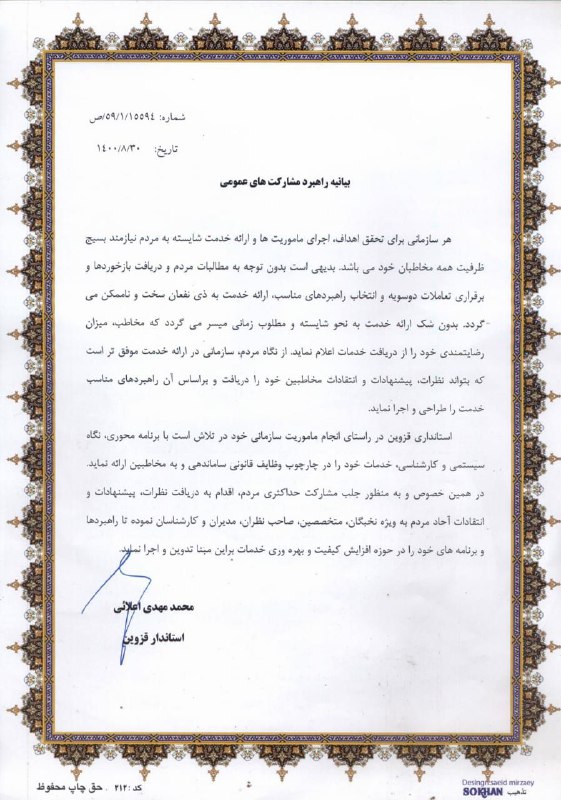 شماره: ۵۹/۱/۱۵۵۹۴/ص
تاریخ: ۱۴۰۰/۸/۳۰
بیانیه راهبرد مشارکت های عمومی
هر سازمانی برای تحقق اهداف، اجرای ماموریت ها و ارائه خدمت شایسته به مردم نیازمند بسیج
ظرفیت همه مخاطبان خود می باشد. بدیهی است بدون توجه به مطالبات مردم و دریافت بازخوردها و
برقراری تعاملات دوسویه و انتخاب راهبردهای مناسب، ارائه خدمت به ذی نفعان سخت و ناممکن می
گردد. بدون شک ارائه خدمت به نحو شایسته و مطلوب زمانی میسر می گردد که مخاطب، میزان
رضایتمندی خود را از دریافت خدمات اعلام نماید. از نگاه مردم، سازمانی در ارائه خدمت موفق تر است
که بتواند نظرات، پیشنهادات و انتقادات مخاطبین خود را دریافت و براساس آن راهبردهای مناسب
خدمت را طراحی و اجرا نماید.
استانداری قزوین در راستای انجام ماموریت سازمانی خود در تلاش است با برنامه محوری، نگاه
سیستمی و کارشناسی، خدمات خود را در چارچوب وظایف قانونی ساماندهی و به مخاطبین ارائه نماید.
در همین خصوص و به منظور جلب مشارکت حداکثری مردم، اقدام به دریافت نظرات، پیشنهادات و
انتقادات آحاد مردم به ویژه نخبگان، متخصصین، صاحب نظران، مدیران و کارشناسان نموده تا راهبردها
و برنامه های خود را در حوزه افزایش کیفیت و بهره وری خدمات براین مبنا تدوین و اجرا نماید.
محمد مهدی اعلائی
استاندار قزوین
کد : ۲۱۲ . حق چاپ محفوظ
Desing:saeid mirzaey
تذهیب SOKHAN